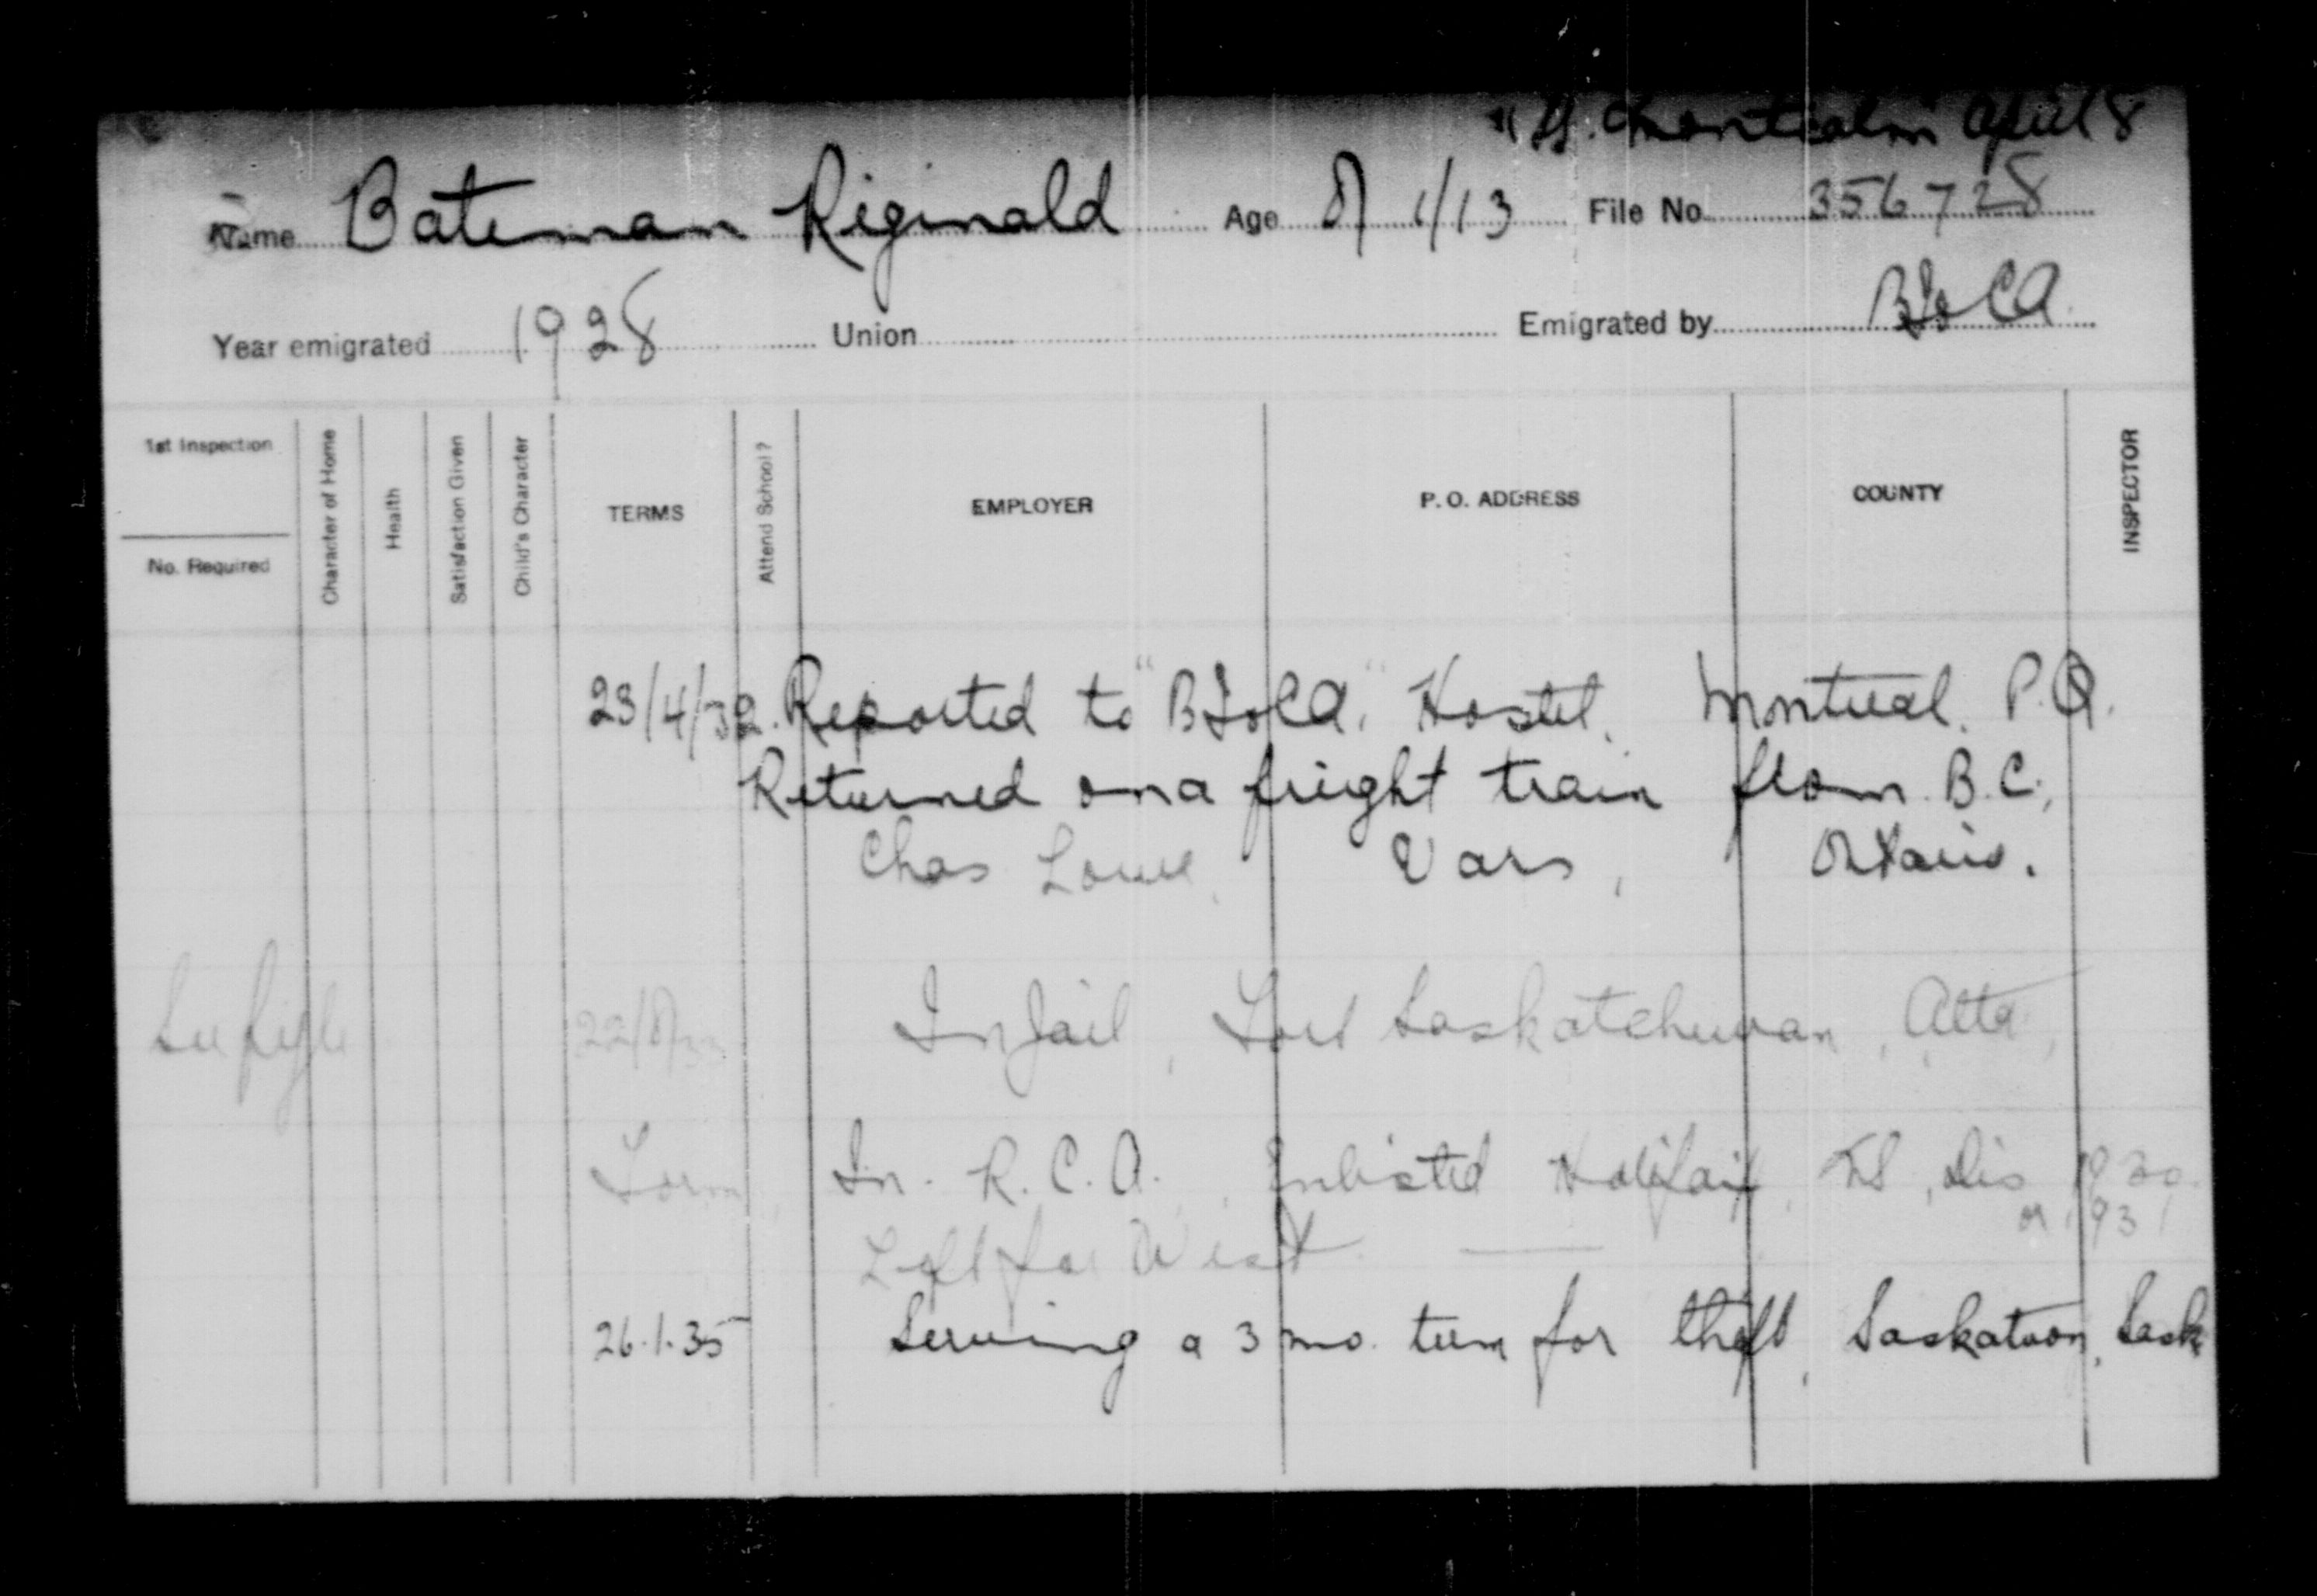 Montcalm April 8
Name Bateman Riginald Age 8/1/13 File No. 356728
Year emigrated 1928 Union Emigrated by BIOCA
1st Inspection
No. Required
Character of Home
Health
Satisfaction Given
Child's Character
TERMS
Attend School?
EMPLOYER
P. O. ADDRESS
COUNTY
INSPECTOR
23/4/32. Reported to "BIOCA" Hostel, Montreal. P.Q.
Returned on a freight train from B.C.,
Chas Lowe, Vars, Ontario.
See file 22/8/33 In Jail, Fort Saskatchewan, Alta,
Form, In. R.C.A., Enlisted Halifax, NS, Dis 1930
or 1931
Left for West —
26.1.35 Serving a 3 mo. term for theft, Saskatoon, Sask